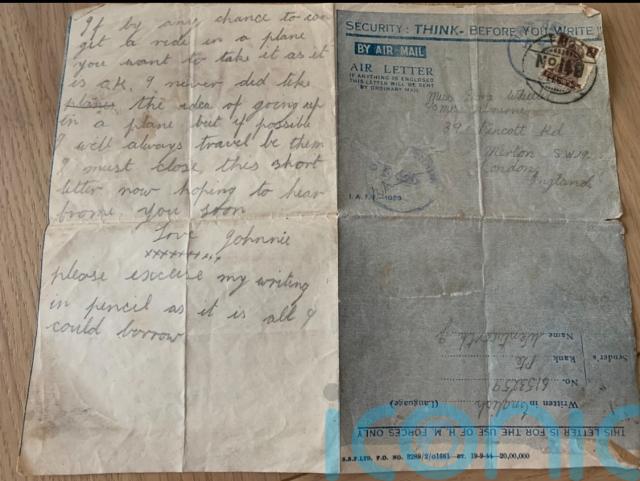 If by any chance to can
get a ride in a plane
you want to take it as it
is o.k. I never did like
planes the idea of going up
in a plane but if possible
I will always travel be them
I must close this short
letter now hoping to hear
from you soon
Love Johnnie
xxxxxxxx
please excuse my writing
in pencil as it is all I
could borrow
SECURITY: THINK- BEFORE YOU WRITE
BY AIR-MAIL
AIR LETTER
IF ANYTHING IS ENCLOSED
THIS LETTER WILL BE SENT
BY ORDINARY MAIL
Miss
39, Rd
Merton S.W.19.
London
England
Sender's
Name Wentworth J
Rank Pte
No. 6153259
Written in English (Language)
THIS LETTER IS FOR THE USE OF H. M. FORCES ONLY
S.S.P.LTD. P.O. NO. 19-9-44—20,00,000
iconic